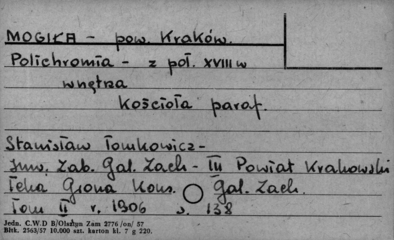 MOGIŁA - pow. Kraków.
Polichromia - z poł. XVIII w
wnętrza
kościoła paraf.
Stanisław Tomkowicz -
Inw. Zab. Gal. Zach - III Powiat Krakowski
Teka Grona Kons. Gal. Zach.
Tom II r. 1906 s. 138
Jedn. C.W.D B/Olsztyn Zam 2776 /on/ 57
Bltk. 2563/57 10.000 szt. karton kl. 7 g 220.